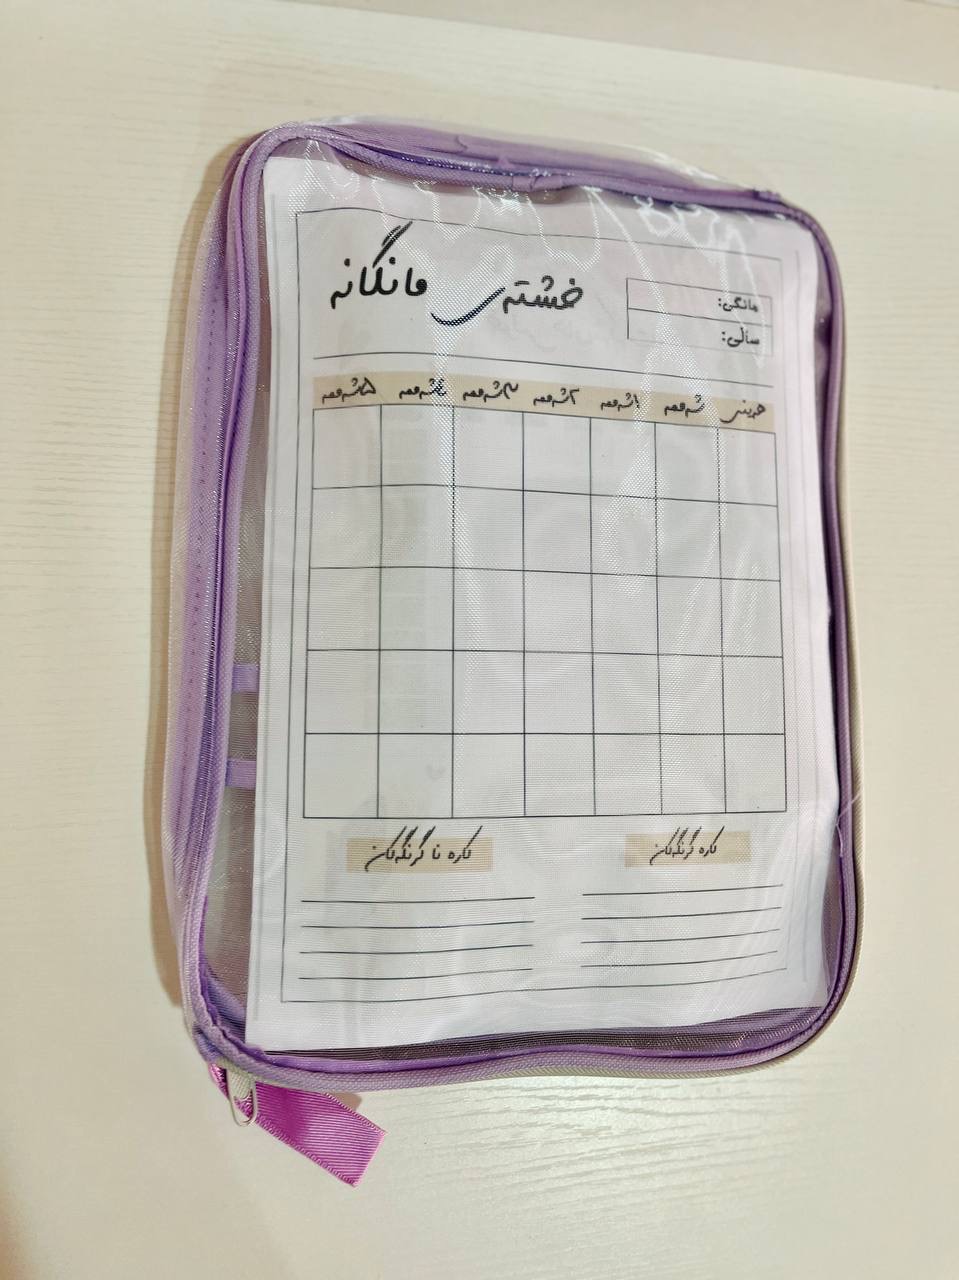 خشتەی مانگانە
مانگی:
ساڵی:
هەینی شەممە ١شەممە ٢شەممە ٣شەممە ٤شەممە ٥شەممە
کارە گرنگەکان
کارە نا گرنگەکان